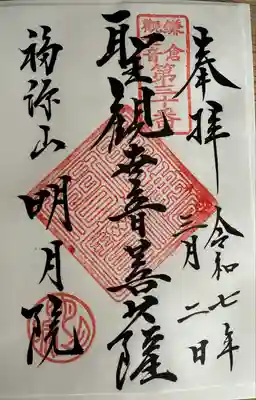 奉拝
令和七年
三月二日
鎌倉
觀音
第三十番
聖観世音菩薩
福源山
明月院